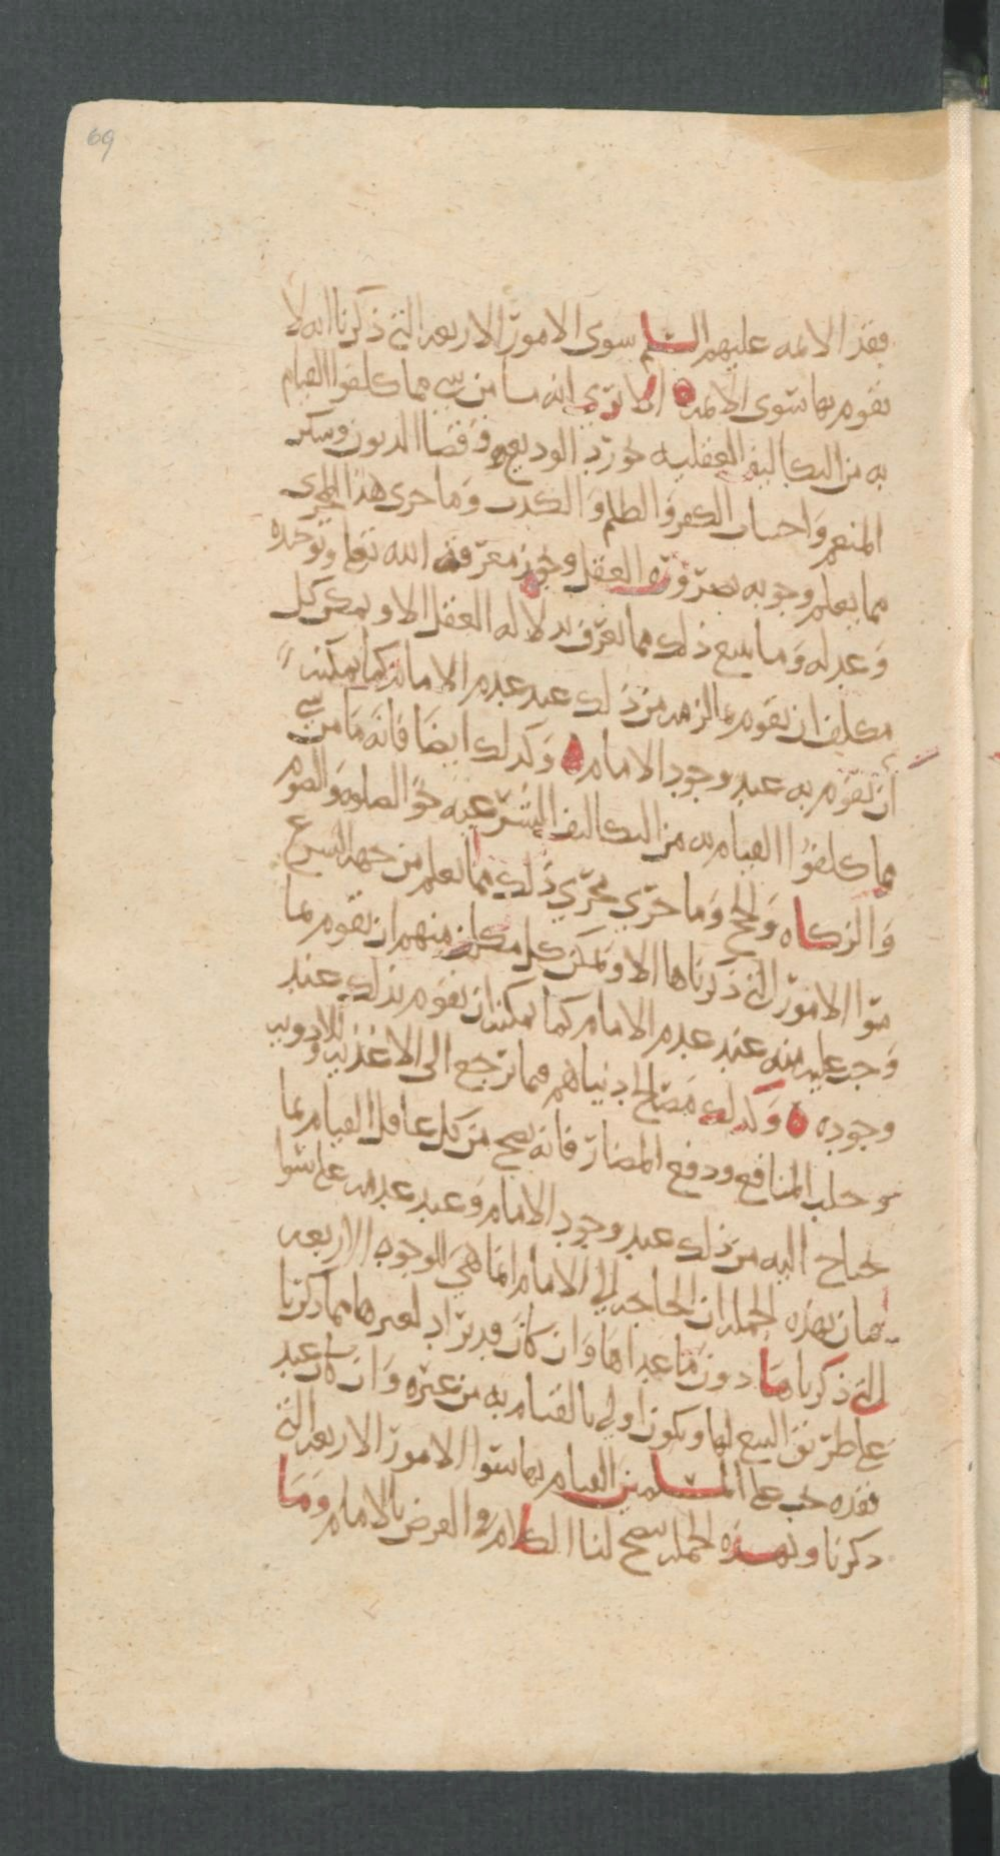 69
فقد الائمه عليهم السلم سوى الامور الاربعه التي ذكرنا انه لا
يقوم بها سوى الائمه ه الا ترى انه ما من شي مما كلفوا القيام
به من التكاليف العقليه نحو رد الوديعه وقضا الديون وشكر
المنعم واجتناب الكفر والظلم والكذب وما جرى هذا المجرى
مما يعلم وجوبه بضرورة العقل ونحو معرفة الله تعلى وتوحده
وعدله وما يتبع ذلك مما يعرف بدلاله العقل الا ويمكن كل
مكلف ان يقوم بما لزمه من ذلك عند عدم الامام كما يمكنه
ان يقوم به عند وجود الامام ه وكذلك ايضا فانه ما من شي
مما كلفوا القيام به من التكاليف الشرعيه نحو الصلوه والصوم
والزكاه والحج وما جرى مجرى ذلك مما يعلم من جهه الشرع
سوا الامور التي ذكرناها الا ويمكن كل مكلف منهم ان يقوم بما
وجب عليه منه عند عدم الامام كما يمكنه ان يقوم بذلك عند
وجوده ه وكذلك مصالح دنياهم مما ترجع الى الاغذيه والادويه
و جلب المنافع ودفع المضار فانه يصح من كل عاقل القيام بما
يحتاج اليه من ذلك عند وجود الامام وعند عدمه على سوا
فبان بهذه الجمله ان الحاجه الى الامام انما هي للوجوه الاربعه
التي ذكرناها دون ما عداها وان كان قد يراد لغيرها مما ذكرنا
على طريق التبع لها ويكون اولى بالقيام به من غيره وان كان عند
فقده يجب على المسلمين القيام بها سوا الامور الاربعه التي
ذكرنا وبهذه الجمله يتضح لنا الكلام في الغرض بالامام وما